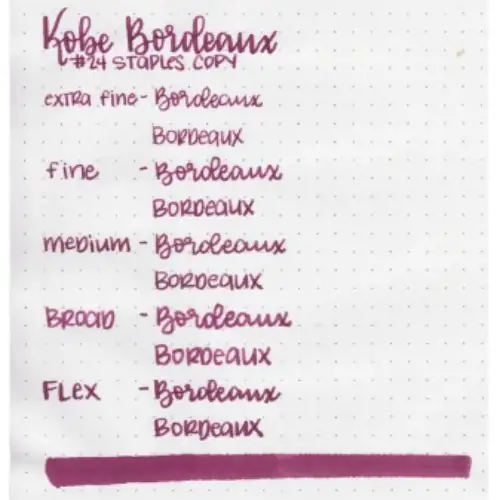 Kobe Bordeaux
#24 STAPLES COPY
extra fine - Bordeaux
BORDEAUX
fine - Bordeaux
BORDEAUX
medium - Bordeaux
BORDEAUX
BROAD - Bordeaux
BORDEAUX
FLEX - Bordeaux
BORDEAUX